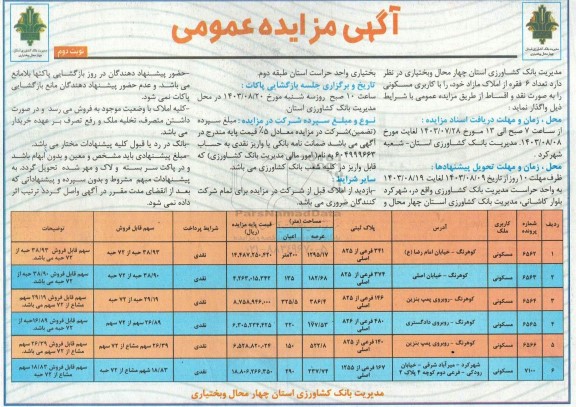 آگهی مزایده عمومی
نوبت دوم
مدیریت بانک کشاورزی استان چهار محال وبختیاری در نظر
دارد تعداد ۶ فقره از املاک مازاد خود، را با کاربری مسکونی
را به صورت نقد و اقساط از طریق مزایده عمومی با شرایط
ذیل واگذار نماید :
محل ، زمان و مهلت دریافت اسناد مزایده :
از ساعت ۷ صبح الی ۱۳ مورخ ۱۴۰۳/۰۷/۲۸ لغایت مورخ
۱۴۰۳/۰۸/۰۸ مدیریت بانک کشاورزی استان- شعبه
شهرکرد
محل ، زمان و مهلت تحویل پیشنهادها :
ظرف مهلت ۱۰ روز از تاریخ ۱۴۰۳/۰۸/۰۹ لغایت ۱۴۰۳/۰۸/۱۹
به واحد حراست مدیریت بانک کشاورزی واقع در، شهرکرد
بلوار کاشانی، مدیریت بانک کشاورزی استان چهار محال و
بختیاری واحد حراست استان طبقه دوم.
تاریخ و برگزاری جلسه بازگشایی پاکات :
ساعت ۱۰ صبح روز سه شنبه مورخ ۱۴۰۳/۰۸/۲۰ در محل
مدیریت بانک کشاورزی استان.
نوع و مبلغ سپرده شرکت در مزایده : مبلغ سپرده
(تضمین)شرکت در مزایده معادل ۵٪ قیمت پایه مندرج در
آگهی می باشد ضمانت نامه بانکی یا واریز نقدی به حساب
۶۰۴۹۹۹۶۶۳ به نام(امور مالی مدیریت بانک کشاورزی) که
قابل واریز در کلیه شعب بانک کشاورزی می باشد.
سایر شرایط :
-بازدید از املاک قبل از شرکت در مزایده برای تمام شرکت
کنندگان ضروری می باشد.
-حضور پیشنهاد دهندگان در روز بازگشایی پاکتها بلامانع
می باشد، و عدم حضور پیشنهاد دهندگان مانع بازگشایی
پاکات نمی شود.
-کلیه املاک با وضعیت موجود به فروش می رسد و در صورت
داشتن متصرف، تخلیه ملک و رفع تصرف بر عهده خریدار
می باشد.
-بانک در رد یا قبول کلیه پیشنهادات مختار می باشد.
-مبلغ پیشنهادی باید مشخص و معین و بدون ابهام باشد
و در پاکت سر بسته و لاک و مهر شده تحویل گردد. به
پیشنهادات مبهم مشروط و بدون سپرده و پیشنهاداتی که
بعد از انقضای مدت مقرر در آگهی واصل گردد ترتیب اثر
داده نمی شود.
ردیف شماره پرونده کاربری ملک آدرس پلاک ثبتی مساحت (متر) عرصه اعیان قیمت پایه مزایده (ریال) شرایط پرداخت سهم قابل فروش توضیحات
۱ ۶۵۶۲ مسکونی کوهرنگ - خیابان امام رضا (ع) ۳۳۱ فرعی از ۸۲۵ ۱۲۹۵/۱۷ ۴۰۰متر نقدی ۳۸/۹۳ حبه از ۷۲ حبه سهم قابل فروش ۳۸/۹۳ حبه از ۷۲ حبه می باشد
۲ ۶۵۶۳ مسکونی کوهرنگ - خیابان اصلی ۳۷۴ فرعی از ۸۲۵ ۱۸۲/۶۸ ۱۳۵ نقدی ۳۸/۹۰ حبه از ۷۲ حبه سهم قابل فروش ۳۸/۹۰ حبه از ۷۲ حبه می باشد
۳ ۶۵۶۴ مسکونی کوهرنگ - روبروی پمپ بنزین ۱۴۶ فرعی از ۸۲۵ ۳۸۶/۴ ۳۲۵/۵ ۸،۷۵۸،۹۴۶،۰۰۰ نقدی ۲۹/۱۹ حبه از ۷۲ حبه سهم قابل فروش ۲۹/۱۹ سهم مشاع از ۷۲ سهم می باشد
۴ ۶۵۶۵ مسکونی کوهرنگ - روبروی دادگستری ۴۸۰ فرعی از ۸۲۶ ۱۷۷/۵۳ ۲۲۰ نقدی ۲۶/۸۹ سهم از ۷۲ سهم
۵ ۶۵۶۶ مسکونی کوهرنگ - روبروی پمپ بنزین ۱۴۰ فرعی از ۸۲۵ ۵۲۲/۸ ۱۵۰ ۶،۵۲۸،۸۲۰،۰۲۴ نقدی ۲۶/۳۹ سهم مشاع از ۷۲ سهم سهم قابل فروش ۲۶/۳۹ سهم مشاع از ۷۲ سهم می باشد
۶ ۷۱۰۰ مسکونی شهرکرد - میرآباد شرقی - خیابان رودکی - فرعی دوم کوچه ۴ پلاک ۲ ۱۶۷ فرعی از ۱۲۵۵ ۲۳۷/۷۴ ۲۹۰ ۱۸،۸۰۶،۲۶۶،۳۵۰ نقدی ۱۸/۸۳ سهم مشاع از ۷۲ حبه سهم قابل فروش ۱۸/۸۳ سهم مشاع از ۷۲ حبه می باشد
مدیریت بانک کشاورزی استان چهار محال وبختیاری